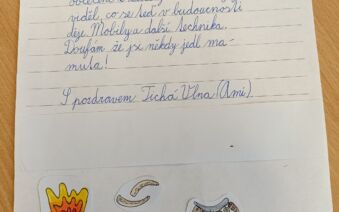 viděl, co se teď v budoucnosti
děje. Mobily a další technika.
Doufám že jsi někdy jedl ma-
muta!
S pozdravem Tichá Vlna (Ami)